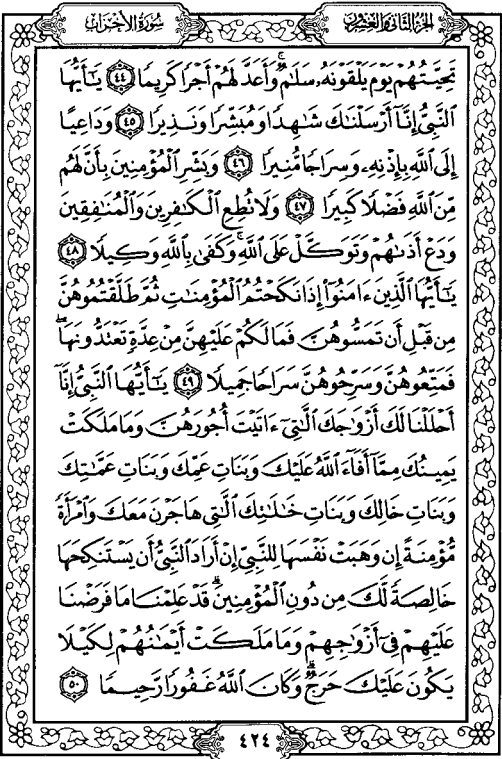 الجزء الثاني والعشرون
سورة الأحزاب
تَحِيَّتُهُمْ يَوْمَ يَلْقَوْنَهُۥ سَلَٰمٌۭ ۚ وَأَعَدَّ لَهُمْ أَجْرًۭا كَرِيمًۭا ٤٤ يَٰٓأَيُّهَا
ٱلنَّبِىُّ إِنَّآ أَرْسَلْنَٰكَ شَٰهِدًۭا وَمُبَشِّرًۭا وَنَذِيرًۭا ٤٥ وَدَاعِيًا
إِلَى ٱللَّهِ بِإِذْنِهِۦ وَسِرَاجًۭا مُّنِيرًۭا ٤٦ وَبَشِّرِ ٱلْمُؤْمِنِينَ بِأَنَّ لَهُم
مِّنَ ٱللَّهِ فَضْلًۭا كَبِيرًۭا ٤٧ وَلَا تُطِعِ ٱلْكَٰفِرِينَ وَٱلْمُنَٰفِقِينَ
وَدَعْ أَذَىٰهُمْ وَتَوَكَّلْ عَلَى ٱللَّهِ ۚ وَكَفَىٰ بِٱللَّهِ وَكِيلًۭا ٤٨
يَٰٓأَيُّهَا ٱلَّذِينَ ءَامَنُوٓا۟ إِذَا نَكَحْتُمُ ٱلْمُؤْمِنَٰتِ ثُمَّ طَلَّقْتُمُوهُنَّ
مِن قَبْلِ أَن تَمَسُّوهُنَّ فَمَا لَكُمْ عَلَيْهِنَّ مِنْ عِدَّةٍۢ تَعْتَدُّونَهَا ۖ
فَمَتِّعُوهُنَّ وَسَرِّحُوهُنَّ سَرَاحًۭا جَمِيلًۭا ٤٩ يَٰٓأَيُّهَا ٱلنَّبِىُّ إِنَّآ
أَحْلَلْنَا لَكَ أَزْوَٰجَكَ ٱلَّٰتِىٓ ءَاتَيْتَ أُجُورَهُنَّ وَمَا مَلَكَتْ
يَمِينُكَ مِمَّآ أَفَآءَ ٱللَّهُ عَلَيْكَ وَبَنَاتِ عَمِّكَ وَبَنَاتِ عَمَّٰتِكَ
وَبَنَاتِ خَالِكَ وَبَنَاتِ خَٰلَٰتِكَ ٱلَّٰتِى هَاجَرْنَ مَعَكَ وَٱمْرَأَةًۭ
مُّؤْمِنَةً إِن وَهَبَتْ نَفْسَهَا لِلنَّبِىِّ إِنْ أَرَادَ ٱلنَّبِىُّ أَن يَسْتَنكِحَهَا
خَالِصَةًۭ لَّكَ مِن دُونِ ٱلْمُؤْمِنِينَ ۗ قَدْ عَلِمْنَا مَا فَرَضْنَا
عَلَيْهِمْ فِىٓ أَزْوَٰجِهِمْ وَمَا مَلَكَتْ أَيْمَٰنُهُمْ لِكَيْلَا
يَكُونَ عَلَيْكَ حَرَجٌۭ ۗ وَكَانَ ٱللَّهُ غَفُورًۭا رَّحِيمًۭا ٥٠
٤٢٤